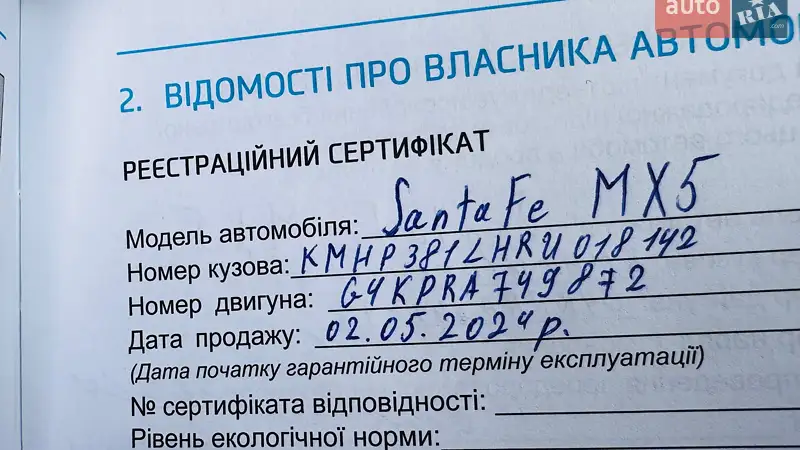 auto RIA.com
2. ВІДОМОСТІ ПРО ВЛАСНИКА АВТОМО
РЕЄСТРАЦІЙНИЙ СЕРТИФІКАТ
Модель автомобіля: Santa Fe MX5
Номер кузова: KMHP381LHRU018142
Номер двигуна: G4KPRA749872
Дата продажу: 02.05.2024 р.
(Дата початку гарантійного терміну експлуатації)
№ сертифіката відповідності:
Рівень екологічної норми: